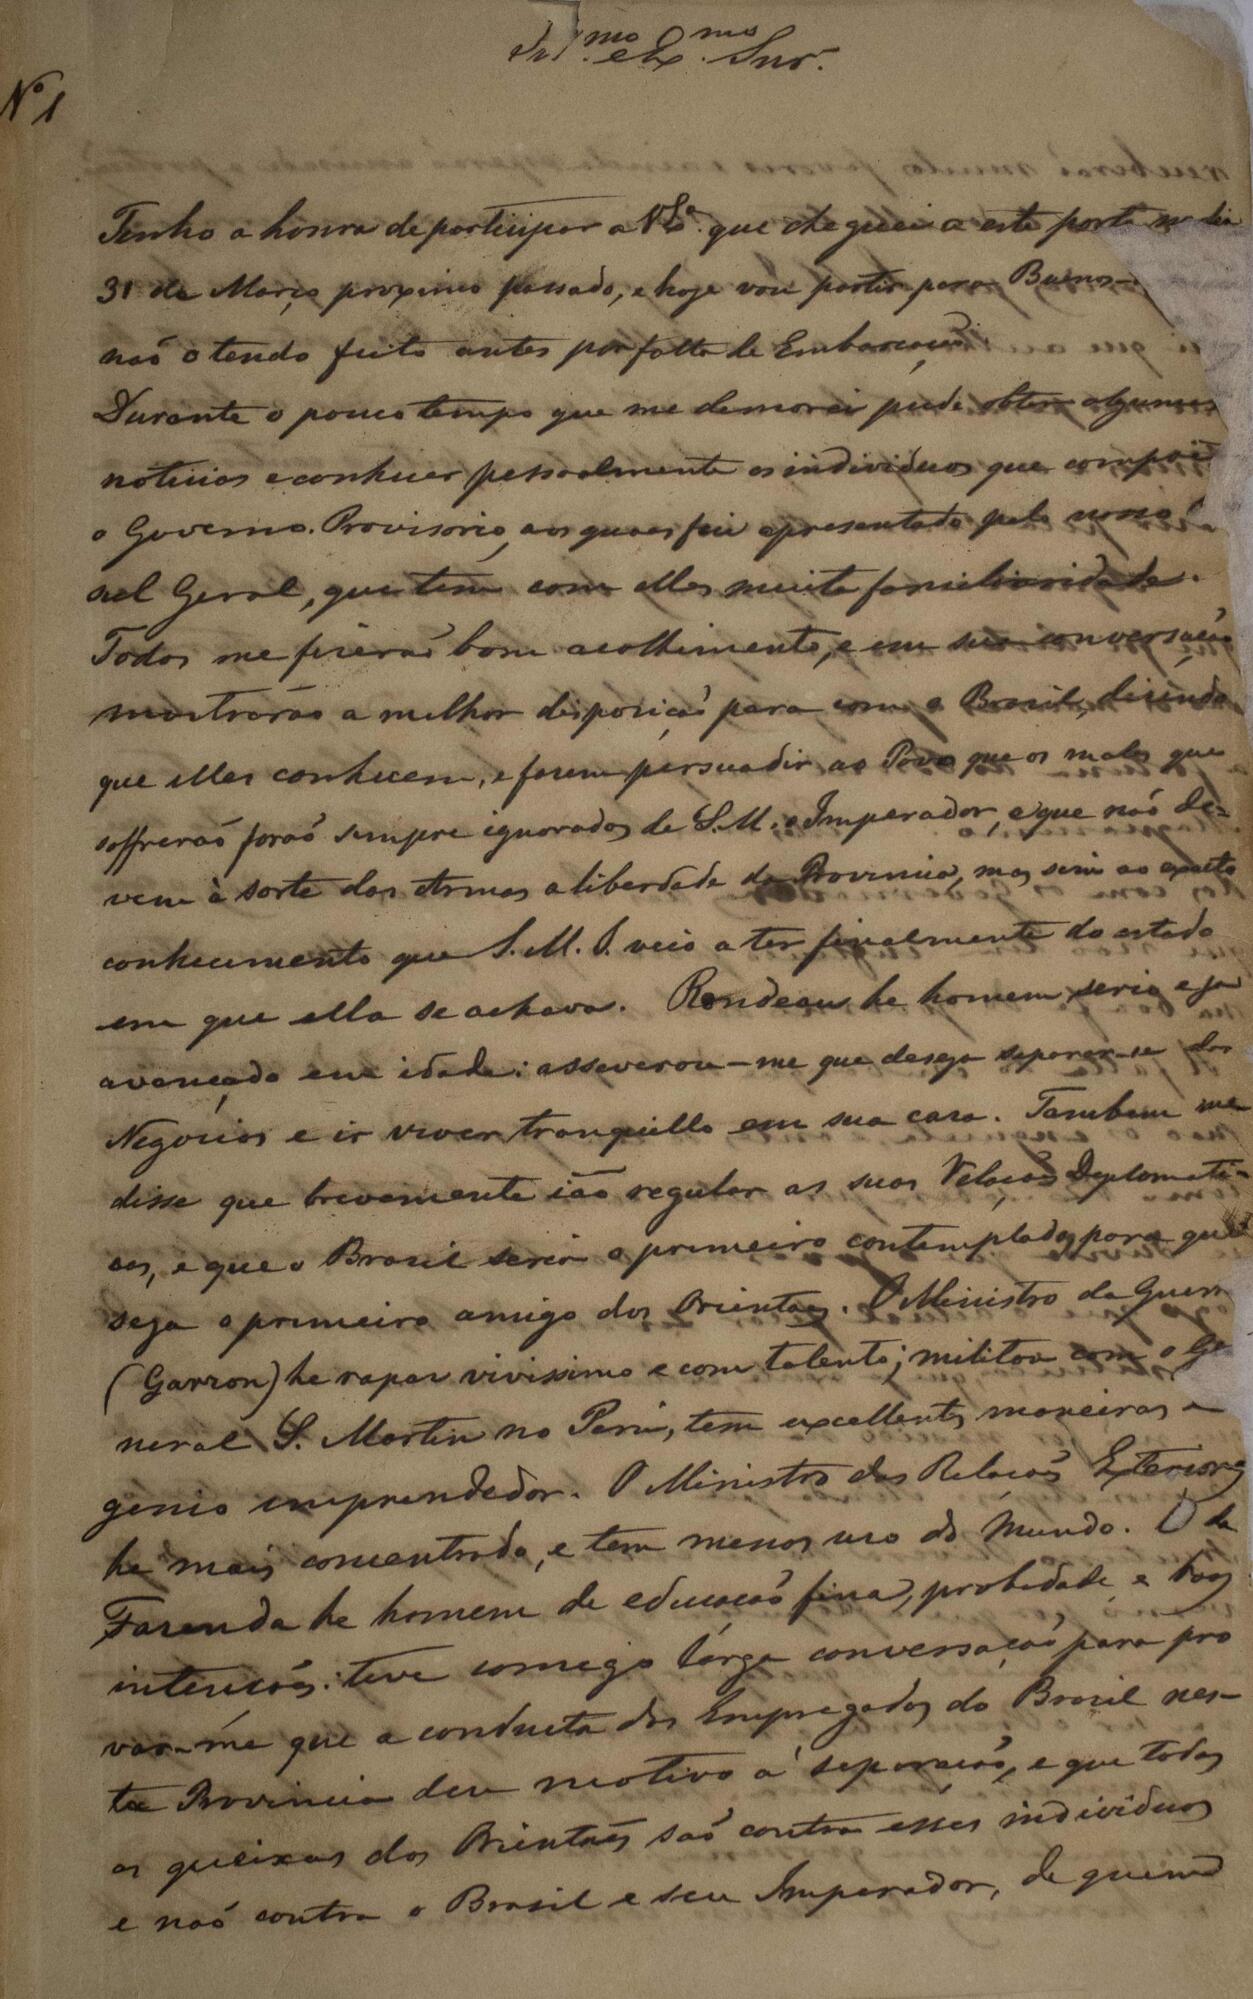 Ill.mo e Ex.mo Snr.
Nº 1
Tenho a honra de participar a V. Exª. que cheguei a este porto no dia
31 de Março proximo passado, e hoje vou partir para Buenos-
naõ o tendo feito antes por falta de Embarcaçaõ
Durante o pouco tempo que me demorei pude obter algumas
noticias e conhecer pessoalmente os individuos que compoẽ
o Governo Provisorio, aos quaes fui apresentado pelo nosso
sul Geral, que tem com elles muita familiaridade.
Todos me fizeraõ bom acolhimento, e em sua conversaçaõ
mostraraõ a melhor disposiçaõ para com o Brasil, dizendo
que elles conhecem, e fazem persuadir ao Povo que os males que
soffreraõ foraõ sempre ignorados de S. M. o Imperador, e que naõ de-
vem à sorte das Armas a liberdade da Provincia, mas sim ao exacto
conhecimento que S. M. I. veio a ter finalmente do estado
em que ella se achava. Rondeau he homem serio e ja
avançado em idade: asseverou-me que deseja separar-se dos
Negocios e ir viver tranquillo em sua casa. Tambem me
disse que brevemente iaõ regular as suas Relaçoẽs Deplomati-
cas, e que o Brasil seria o primeiro contemplado, para que
seja o primeiro amigo dos Orientaes. O Ministro da Guerr
(Garzon) he rapaz vivissimo e com talento; militou com o Ge
neral S. Martin no Perú, tem excellentes maneiras e
genio emprendedor. O Ministro das Relaçoẽs Exteriores
he mais concentrado, e tem menos uso do Mundo. O da
Fazenda he homem de educaçaõ fina, probidade, e boas
intençoẽs: teve comigo larga conversaçaõ para pro
var-me que a conducta dos Empregados do Brasil nes-
ta Provincia deu motivo á separaçaõ, e que todas
as queixas dos Orientaes saõ contra esses individuos
e naõ contra o Brasil e seu Imperador, de quem